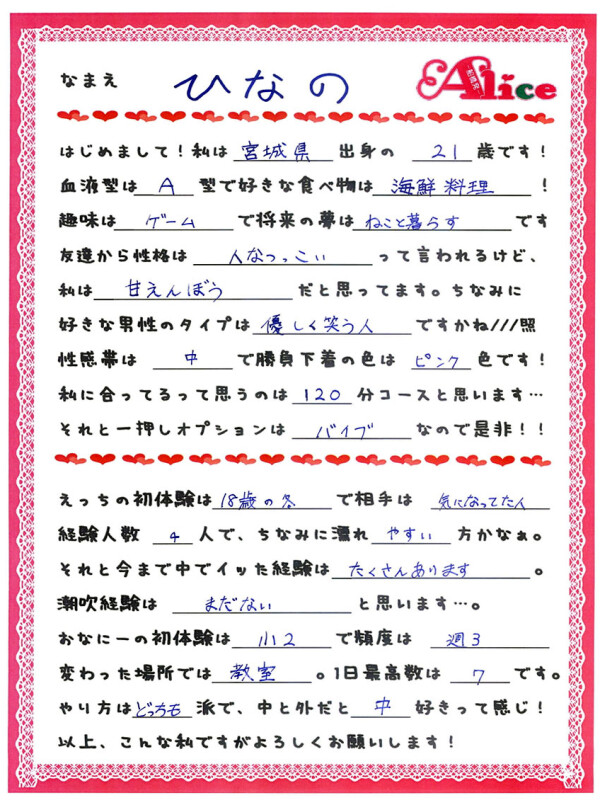 なまえ ひなの
船橋発 Alice
はじめまして！私は 宮城県 出身の 21 歳です！
血液型は A 型で好きな食べ物は 海鮮料理 ！
趣味は ゲーム で将来の夢は ねこと暮らす です
友達から性格は 人なつっこい って言われるけど、
私は 甘えんぼう だと思ってます。ちなみに
好きな男性のタイプは 優しく笑う人 ですかね///照
性感帯は 中 で勝負下着の色は ピンク 色です！
私に合ってるって思うのは 120 分コースと思います…
それと一押しオプションは バイブ なので是非！！
えっちの初体験は 18歳の冬 で相手は 気になってた人
経験人数 4 人で、ちなみに濡れ やすい 方かなぁ。
それと今まで中でイッた経験は たくさんあります 。
潮吹経験は まだない と思います…。
以上、こんな私ですがよろしくお願いします！